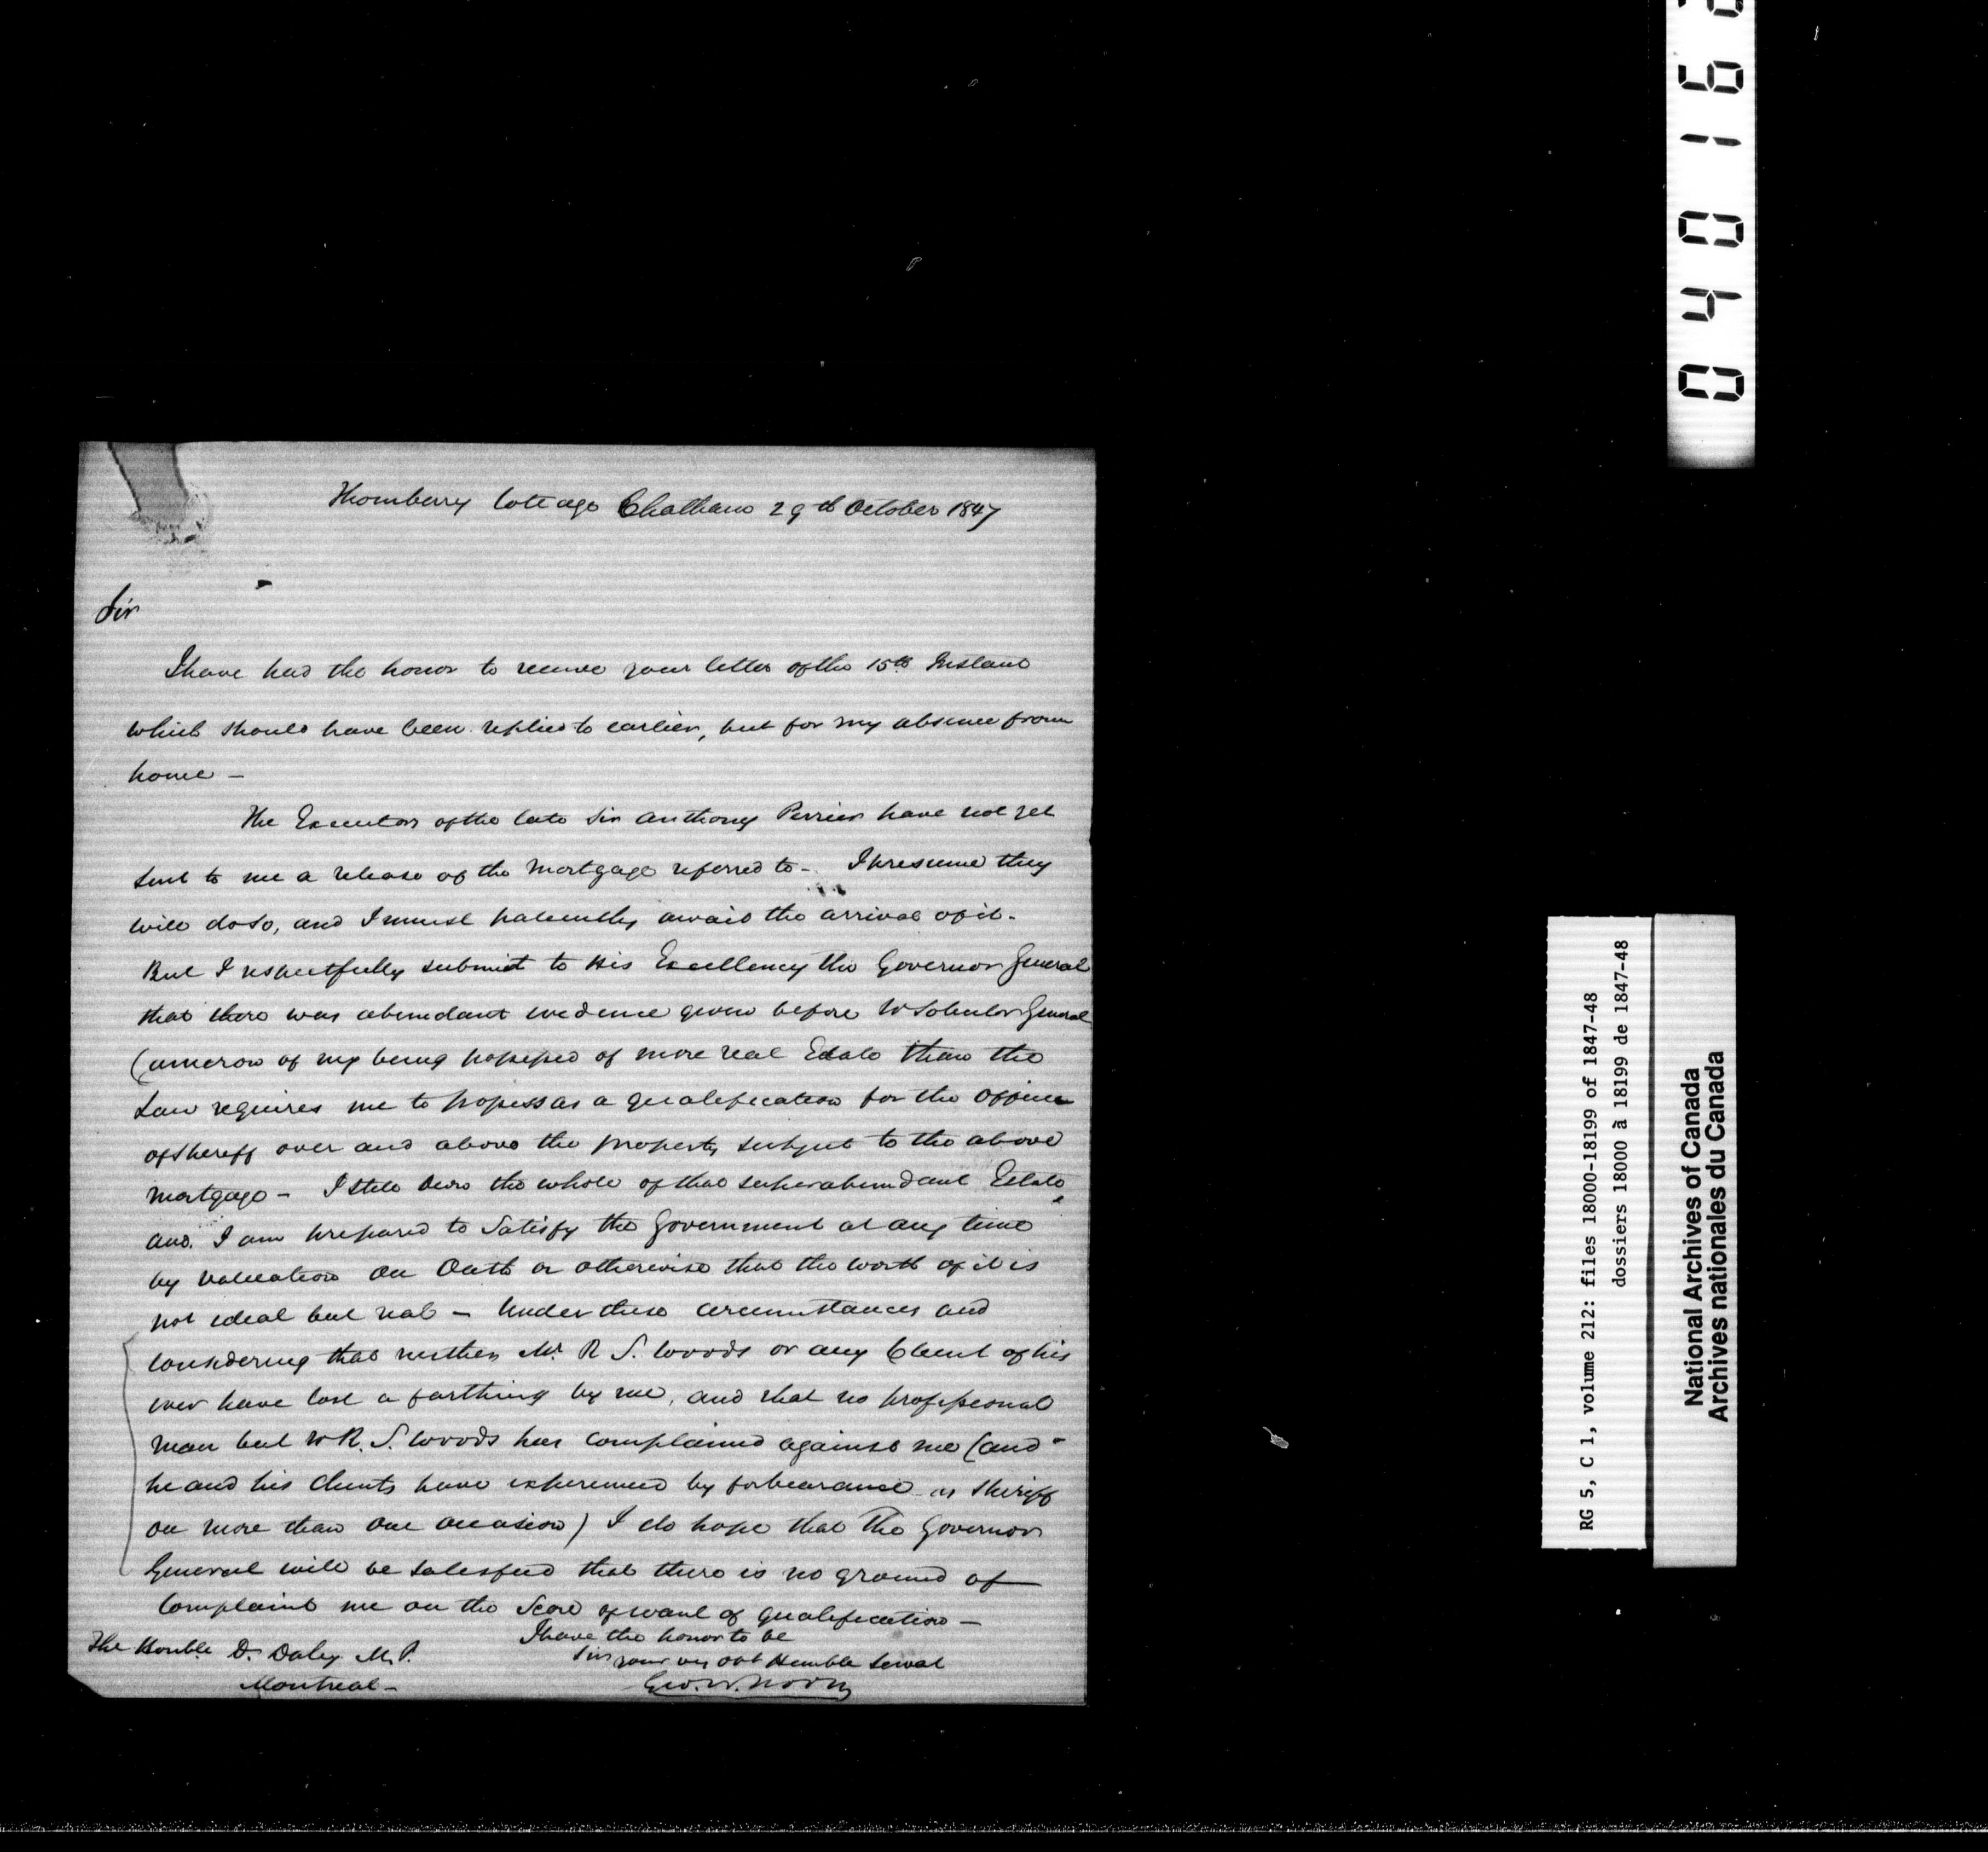 Thornberry Cottage Chatham 29th October 1847
Sir
I have had the honor to receive your letter of the 15th Instant
which should have been replied to earlier, but for my absence from
home -
The Executors of the late Sir Anthony Perrier have not yet
sent to me a release of the mortgage referred to - I presume they
will do so, and I must patiently await the arrival of it -
But I respectfully submit to His Excellency the Governor General
that there was abundant evidence given before Mr Solicitor General
Cameron of my being possessed of more real Estate than the
Law requires me to possess as a qualification for the office
of Sheriff over and above the property subject to the above
mortgage - I still own the whole of that superabundant Estate
and I am prepared to Satisfy the Government at any time
by valuation on Oath or otherwise that the worth of it is
not ideal but real - Under these circumstances and
considering that neither Mr R. S. Woods or any Client of his
ever have lost a farthing by me, and that no professional
man but Mr R. S. Woods has complained against me (and
he and his Clients have experienced my forbearance as Sheriff
on more than one occasion) I do hope that the Governor
General will be satisfied that there is no ground of
Complaint me on the Score of want of qualification -
I have the honor to be
Sir your very obt Humble Servt
Geo. W. Foott
The Honble D. Daly M.P.
Montreal -
040162
RG 5, C 1, volume 212: files 18000-18199 of 1847-48
dossiers 18000 à 18199 de 1847-48
National Archives of Canada
Archives nationales du Canada